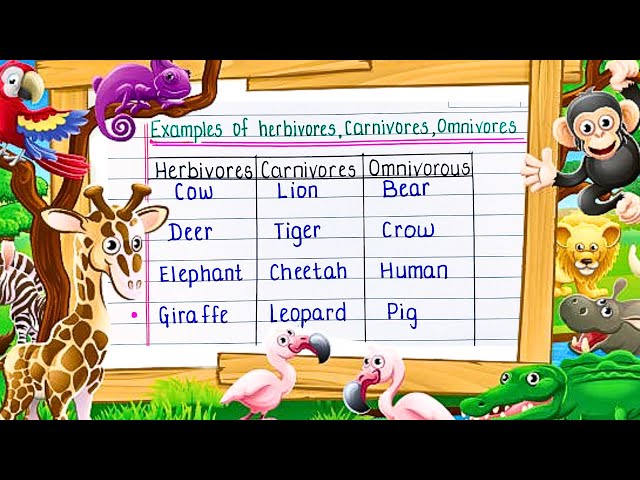 Examples of herbivores, Carnivores, Omnivores
Herbivores Carnivores Omnivorous
Cow Lion Bear
Deer Tiger Crow
Elephant Cheetah Human
Giraffe Leopard Pig